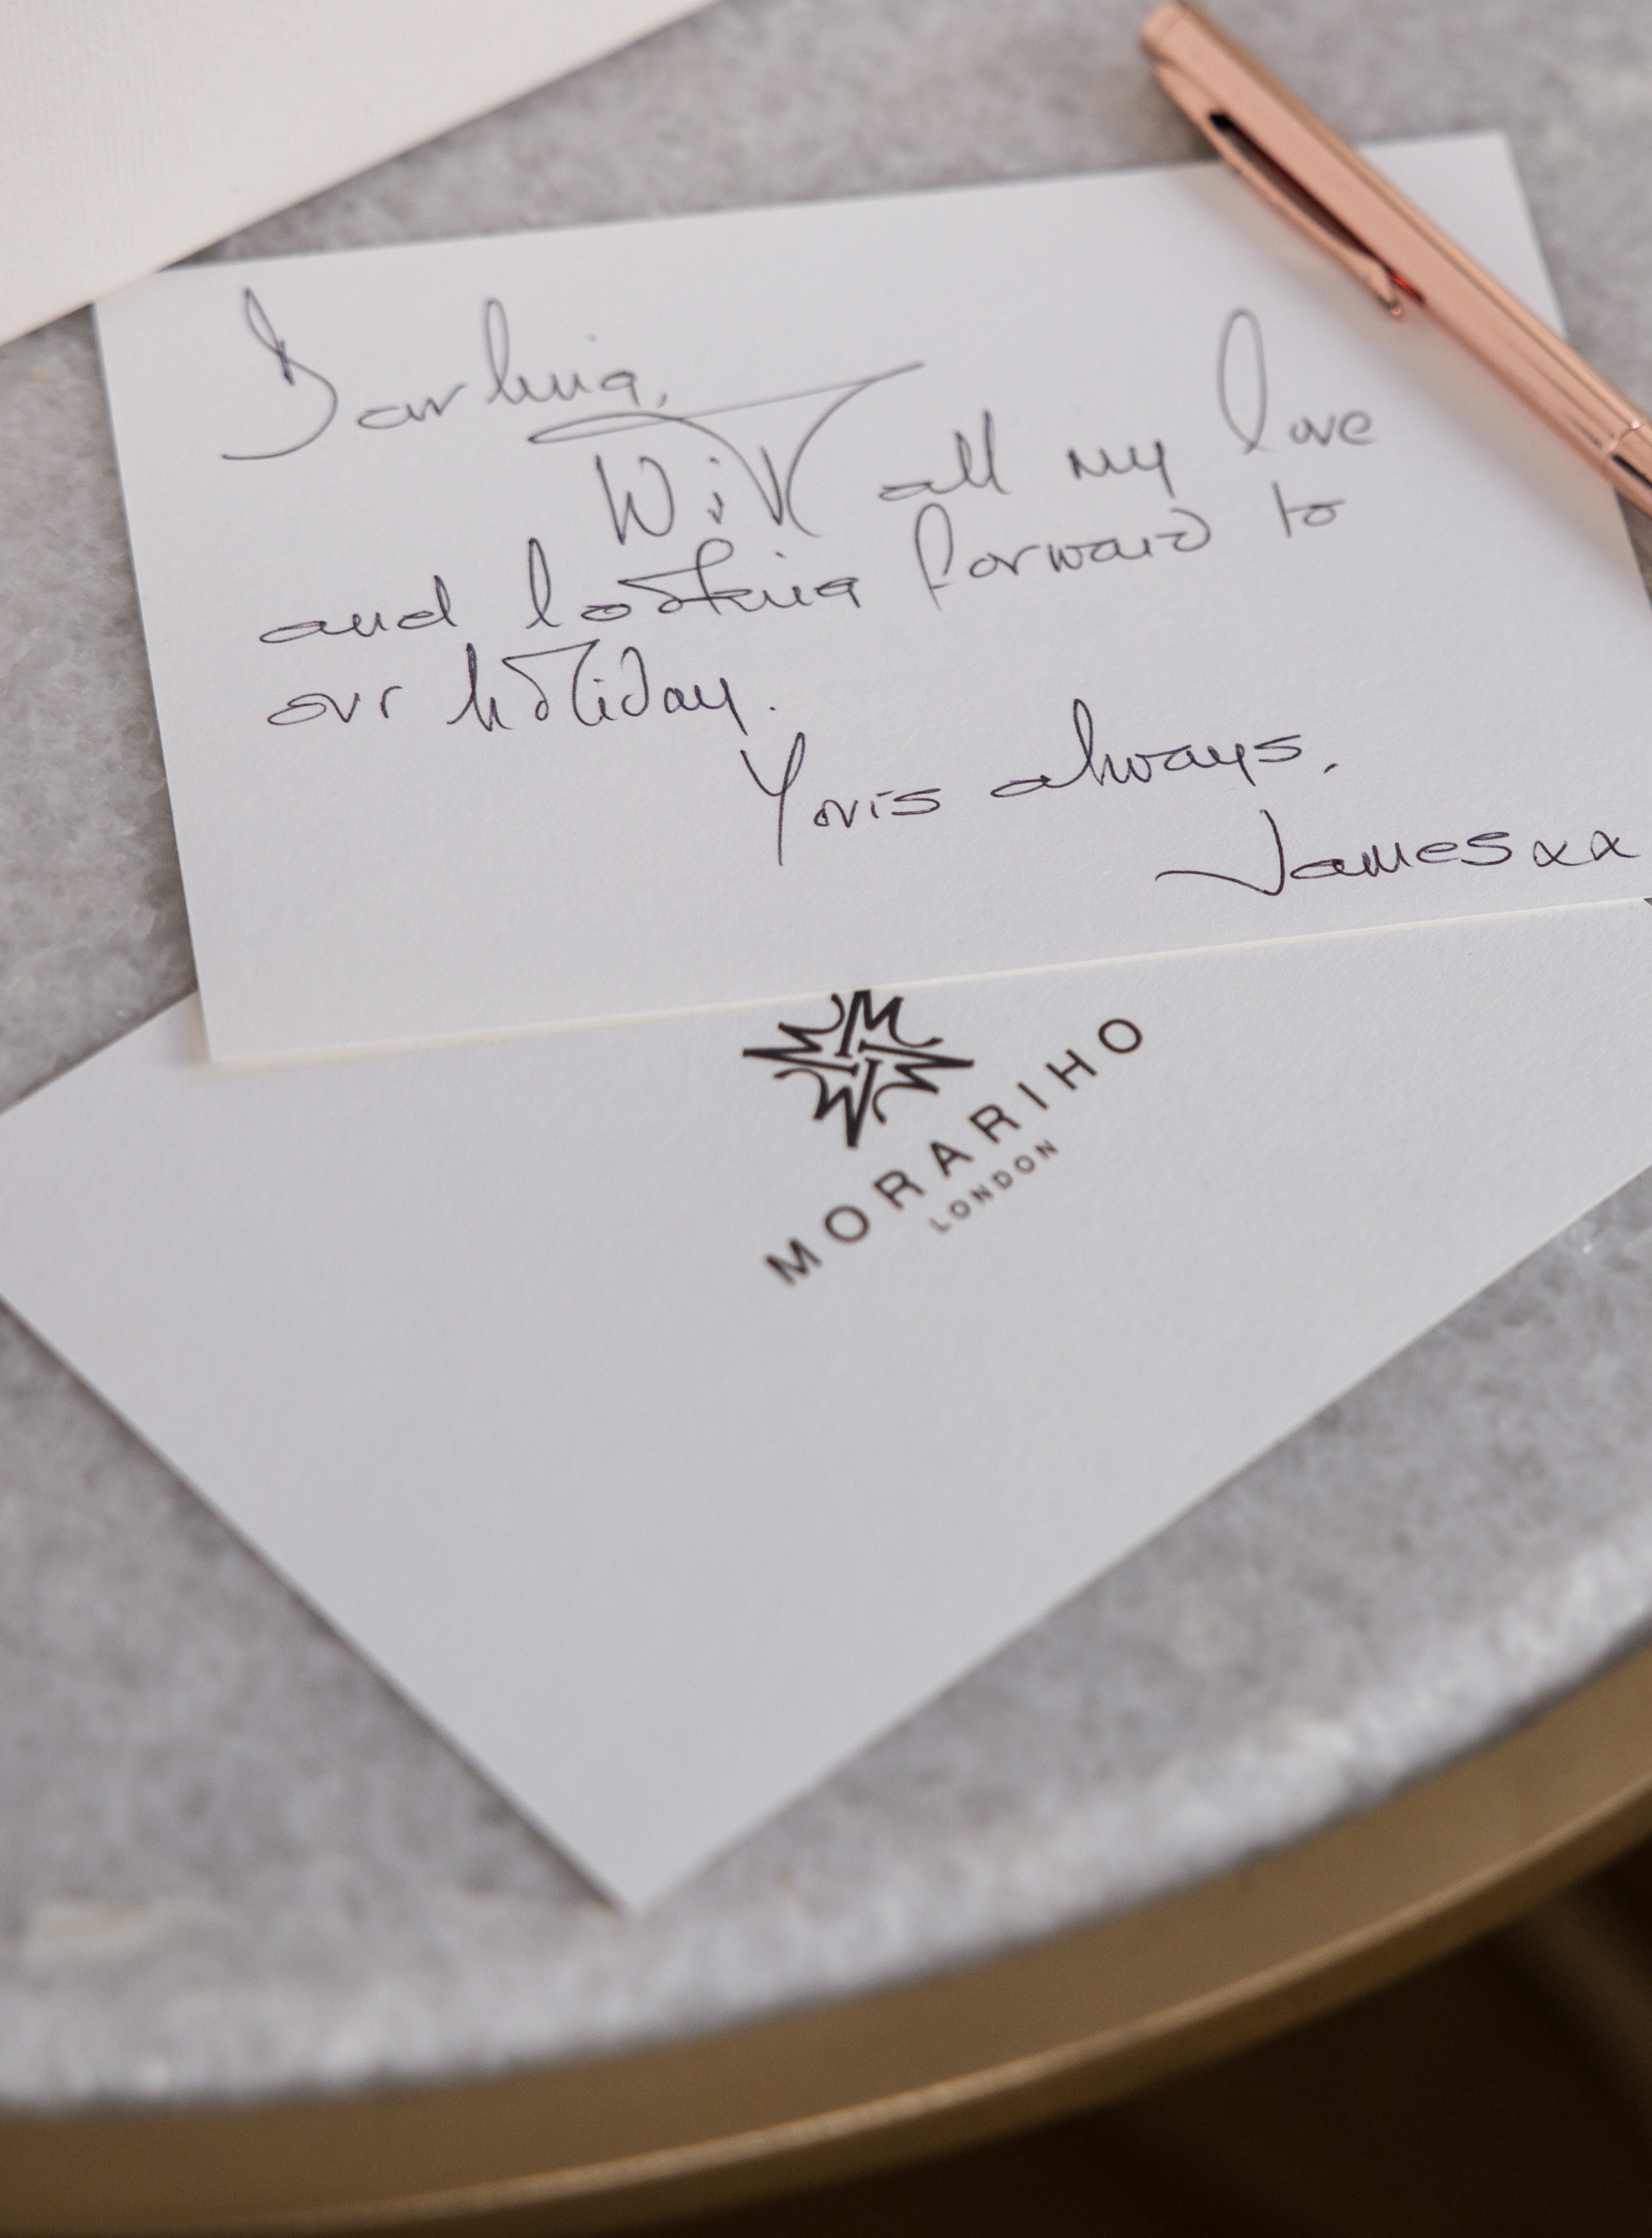 Darling,
With all my love
and looking forward to
our holiday.
Yours always,
James xx
MORARIHO
LONDON